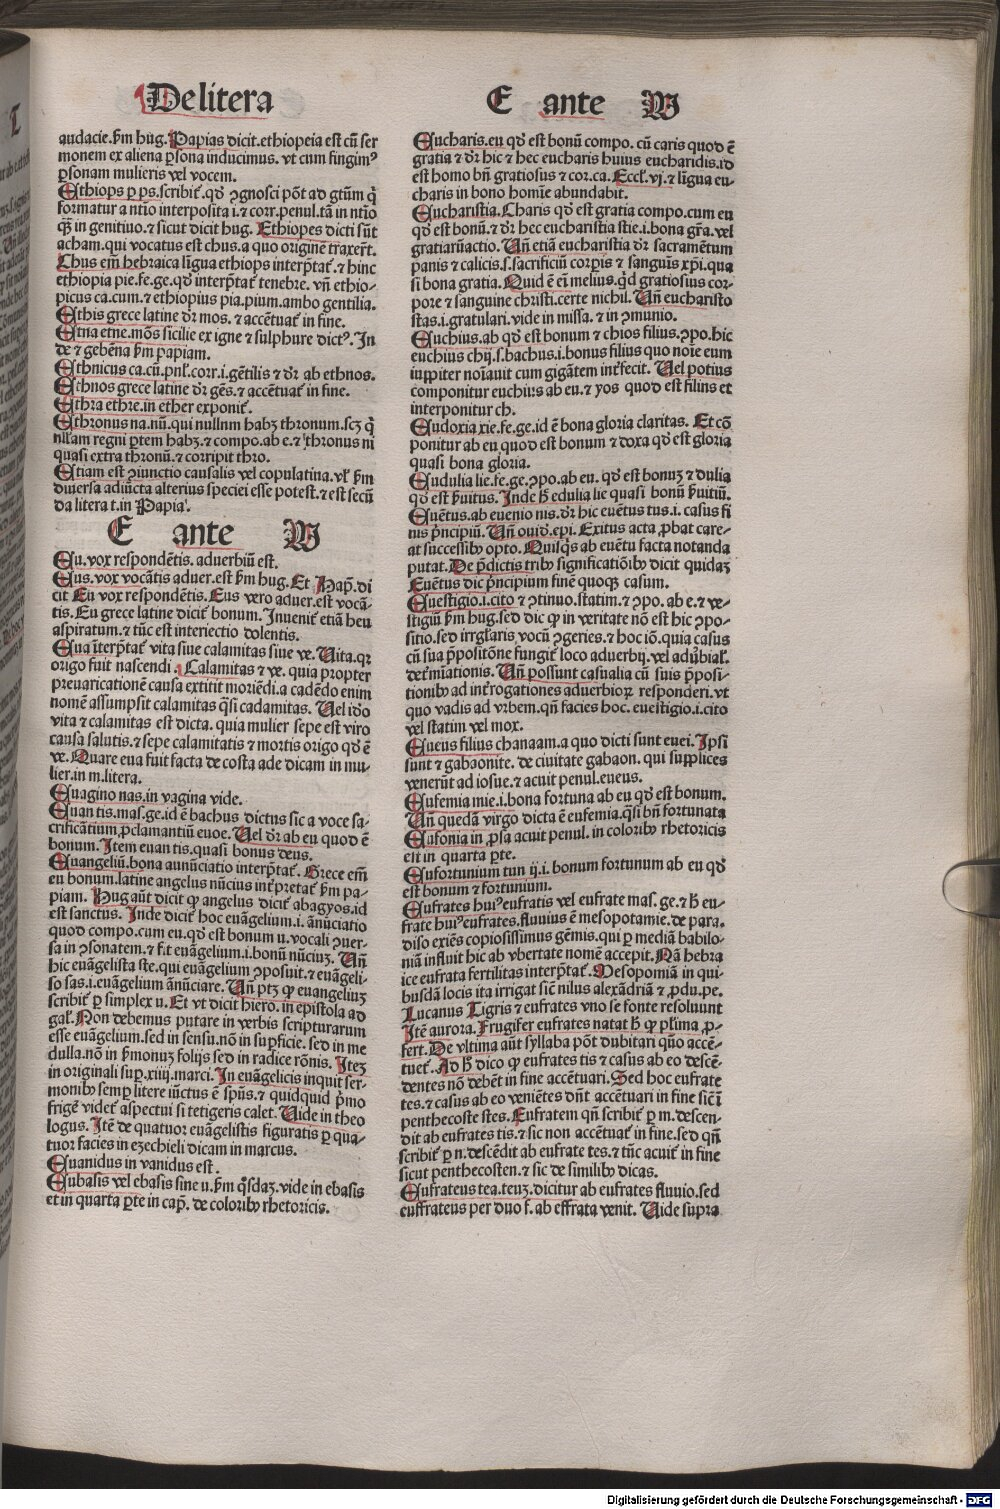 De litera
E ante W
audacie. ẜm hug. Papias dicit. ethiopeia est cū ser
monem ex aliena ꝑsona inducimus. vt cum fingimꝰ
ꝑsonam mulieris vel vocem.
Ethiops ꝑ ps. scribit᷑. qđ ꝯgnosci pōt ad gtm̄ q̇
formatur a ntīo interposita i. ⁊ corr. penul. tā in ntīo
qȝ̄ in genitiuo. ⁊ sicut dicit hug. Ethiopes dicti sūt
a cham. qui vocatus est chus. a quo originē traxerūt.
Chus em̄ hebraica līgua ethiops interp̄tat᷑. ⁊ hinc
ethiopia pie. fe. ge. qđ interp̄tat᷑ tenebre. vn̄ ethio-
picus ca. cum. ⁊ ethiopius pia. pium. ambo gentilia.
Ethis grece latine dr̄ mos. ⁊ accētuat᷑ in fine.
Etna etne. mōs sicilie ex igne ⁊ sulphure dictꝰ. In
de ⁊ gehēna ẜm papiam.
Ethnicus ca. cū. pnl̄. corr. i. gētilis ⁊ dr̄ ab ethnos.
Ethnos grece latine dr̄ gēs. ⁊ accētuat᷑ in fine.
Ethra ethre. in ether exponit᷑.
Ethronus na. nū. qui nullum habȝ thronum. scȝ q̇
nllam regni ꝑtem habȝ. ⁊ compo. ab e. ⁊ thronus ni
quasi extra thronū. ⁊ corripit thro.
Etiam est ꝯiunctio causalis vel copulatina. vl̄ ẜm
diuersa adiūcta alterius speciei esse potest. ⁊ est secū
da litera t. in Papia.
E ante W
Eu. vox respondētis. aduerbiū est.
Eus. vox vocātis aduer. est ẜm hug. Et Pap. di
cit Eu vox respondētis. Eus vero aduer. est vocā-
tis. Eu grece latine dicit᷑ bonum. Inuenit᷑ etiā heu
aspiratum. ⁊ tūc est interiectio dolentis.
Eua īterp̄tat᷑ vita siue calamitas siue ve. Vita. qꝛ
origo fuit nascendi. Calamitas ⁊ ve. quia propter
preuaricationē causa extitit moriēdi. a cadēdo enim
nomē assumpsit calamitas q̄si cadamitas. Uel ido
vita ⁊ calamitas est dicta. quia mulier sepe est viro
causa salutis. ⁊ sepe calamitatis ⁊ mortis origo qđ ē
ve. Quare eua fuit facta de costa ade dicam in mu-
lier. in m. litera.
Euagino nas. in vagina vide.
Euan tis. mas. ge. id ē bachus dictus sic a voce sa-
crificātium. ꝓclamantiū euoe. Uel dr̄ ab eu quod ē
bonum. Item euan tis. quasi bonus deus.
Euangeliū. bona annūciatio interp̄tat᷑. Grece em̄
eu bonum. latine angelus nūcius int̓pretat᷑ ẜm pa-
piam. Hug aūt dicit ꝙ angelus dicit᷑ abagyos. id
est sanctus. Inde dicit᷑ hoc euāgelium. i. ānūciatio
quod compo. cum eu. qđ est bonum u. vocali ꝯuer-
sa in ꝯsonatem. ⁊ f. t euāgelium. i. bonū nūciuȝ. Vn̄
hic euāgelista ste. qui euangelium ꝯposuit. ⁊ euāgeli-
so sas. i. euāgelium ānūciare. Un̄ ptȝ ꝙ euangeliuȝ
scribit᷑ ꝑ simplex u. Et vt dicit hiero. in epistola ad
gal̄. Non debemus putare in verbis scripturarum
esse euāgelium. sed in sensu. nō in suꝑficie. sed in me
dulla. nō in ẜmonuȝ folijs sed in radice rōnis. Iteȝ
in originali suꝑ. xiiij. marci. In euāgelicis inquit ser-
monibꝰ semꝑ litere iūctus ē spūs. ⁊ quidquid p̄mo
frigē videt᷑ aspectui si tetigeris calet. Vide in theo
logus. Itē de quatuor euāgelistis figuratis ꝑ qua-
tuor facies in ezechieli dicam in marcus.
Euanidus in vanidus est.
Eubasis vel ebasis sine u. ẜm q̄sdaȝ. vide in ebasis
et in quarta ꝑte in cap̄. de coloribꝰ rhetoricis.
Eucharis. eu qđ est bonū compo. cū caris quod ē
gratia ⁊ dr̄ hic ⁊ hec eucharis huius eucharidis. id
est homo bn̄ gratiosus ⁊ cor. ca. Eccl̄. vj. ⁊ līgua eu-
charis in bono homīe abundabit.
Eucharistia. Charis qđ est gratia compo. cum eu
qđ est bonū. ⁊ dr̄ hec eucharistia stie. i. bona gr̄a. vel
gratiarūactio. Un̄ etiā eucharistia dr̄ sacramētum
panis ⁊ calicis. s. sacrificiū corꝑis ⁊ sanguīs xp̄i. qua
si bona gratia. Quid ē em̄ melius. qd̓ gratiosius cor-
pore ⁊ sanguine christi. certe nichil. Un̄ eucharisto
stas. i. gratulari. vide in missa. ⁊ in ꝯmunio.
Euchius. ab qđ est bonum ⁊ chios filius. ꝯpo. hic
euchius chij. s. bachus. i. bonus filius quo noīe eum
iuppiter noīauit cum gigātem int̓fecit. Uel potius
componitur euchius ab eu. ⁊ yos quod est filins et
interponitur ch.
Eudoxia xie. fe. ge. id ē bona gloria claritas. Et cō
ponitur ab eu quod est bonum ⁊ doxa qđ est gloria
quasi bona gloria.
Eudulia lie. fe. ge. ꝯpo. ab eu. qđ est bonuȝ ⁊ dulia
qđ est ẜuitus. Inde h̓ edulia lie quasi bonū ẜuitiū.
Euētus. ab euenio nis. dr̄ hic euētus tus. i. casus fi
nis p̄ncipiū. Un̄ ouid. epi. Exitus acta ꝓbat care-
at successibꝰ opto. Quisq̄s ab euētu facta notanda
putat. De p̄dictis tribꝰ significatiōibꝰ dicit quidaȝ
Euētus dic p̄ncipium finē quoqȝ casum.
Euestigio. i. cito ⁊ ꝯtinuo. statim. ⁊ ꝯpo. ab e. ⁊ ve-
stigiū ẜm hug. sed dic ꝙ in veritate nō est hic ꝯpo-
sitio. sed irrg̓laris vocū ꝯgeries. ⁊ hoc iō. quia casus
cū sua p̄positōne fungit᷑ loco aduerbij. vel adu̓bial̄.
det̓mīationis. Un̄ possunt casualia cū suis p̄posi-
tionibꝰ ad int̓rogationes aduerbioꝝ responderi. vt
quo vadis ad vrbem. qn̄ facies hoc. euestigio. i. cito
vel statim vel mox.
Eueus filius chanaam. a quo dicti sunt euei. Ipsi
sunt ⁊ gabaonite. de ciuitate gabaon. qui supplices
venerūt ad iosue. ⁊ acuit penul. eueus.
Eufemia mie. i. bona fortuna ab eu qđ est bonum.
Un̄ quedā virgo dicta ē eufemia. q̄si bn̄ fortunata
Eufonia in ꝓsa acuit penul. in coloribꝰ rhetoricis
est in quarta ꝑte.
Eufortunium tun ij. i. bonum fortunum ab eu qđ
est bonum ⁊ fortunium.
Eufrates huiꝰ eufratis vel eufrate mas. ge. ⁊ h̓ eu-
frate huiꝰ eufrates. fluuius ē mesopotamie. de para-
diso exiēs copiosissimus gēmis. qui ꝑ mediā babilo-
niā influit hic ab vbertate nomē accepit. Nā hebra
ice eufrata fertilitas interp̄tat᷑. Mesopomiā in qui-
busdā locis ita irrigat sic̄ nilus alexādriā ⁊ ꝓdu. pe.
Lucanus Tigris ⁊ eufrates vno se fonte resoluunt
Itē aurora. Frugifer eufrates natat h̓ ꝙ pl̓ima ꝓ-
fert. De vltima aūt syllaba pōt dubitari quō accē-
tuet᷑. Ad h̓ dico ꝙ eufrates tis ⁊ casus ab eo descē-
dentes nō debēt in fine accētuari. Sed hoc eufrate
tes. ⁊ casus ab eo veniētes dn̄t accētuari in fine sic̄ ī
penthecoste stes. Eufratem qn̄ scribit᷑ ꝑ m. descen-
dit ab eufrates tis. ⁊ sic non accētuat᷑ in fine. sed qn̄
scribit᷑ ꝑ n. descēdit ab eufrate tes. ⁊ tūc acuit᷑ in fine
sicut penthecosten. ⁊ sic de similibꝰ dicas.
Eufrateus tea. teuȝ. dicitur ab eufrates fluuio. sed
euffrateus per duo f. ab effrata venit. Uide supra
Digitalisierung gefördert durch die Deutsche Forschungsgemeinschaft - DFG